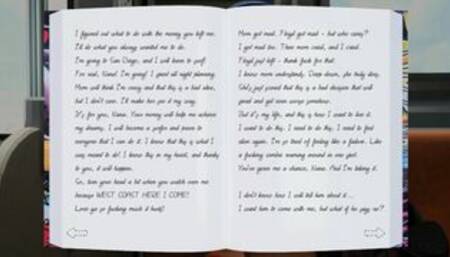 I figured out what to do with the money you left me.
I'll do what you always wanted me to do.
I'm going to San Diego, and I will learn to surf.
I'm real, Nana! I'm going! I spent all night planning.
Mom will think I'm crazy and that this is a bad idea,
but I don't care. I'll make her see it my way.
It's for you, Nana. Your money will help me achieve
my dreams. I will become a surfer and prove to
everyone that I can do it. I know that this is what I
was meant to do! I know this in my heart, and thanks
to you, it will happen.
So, turn your head a bit when you watch over me
because WEST COAST HERE I COME!!
Love you so fucking much it hurts!
Mom got mad, Floyd got mad - but who cares?
I got mad too. Then mom cried, and I cried.
Floyd just left - thank fuck for that.
I know mom understands. Deep down, she truly does.
She's just scared that this is a bad decision that will
and get even worse somehow.
But it's my life, and this is how I want to live it.
I want to do this; I need to do this; I need to feel
alive again. I'm so tired of feeling like a failure. Like
a fucking zombie roaming around in our yard.
You've given me a chance, Nana. And I'm taking it.
I don't know how I will tell him about it...
I want him to come with me, but what if he says no?